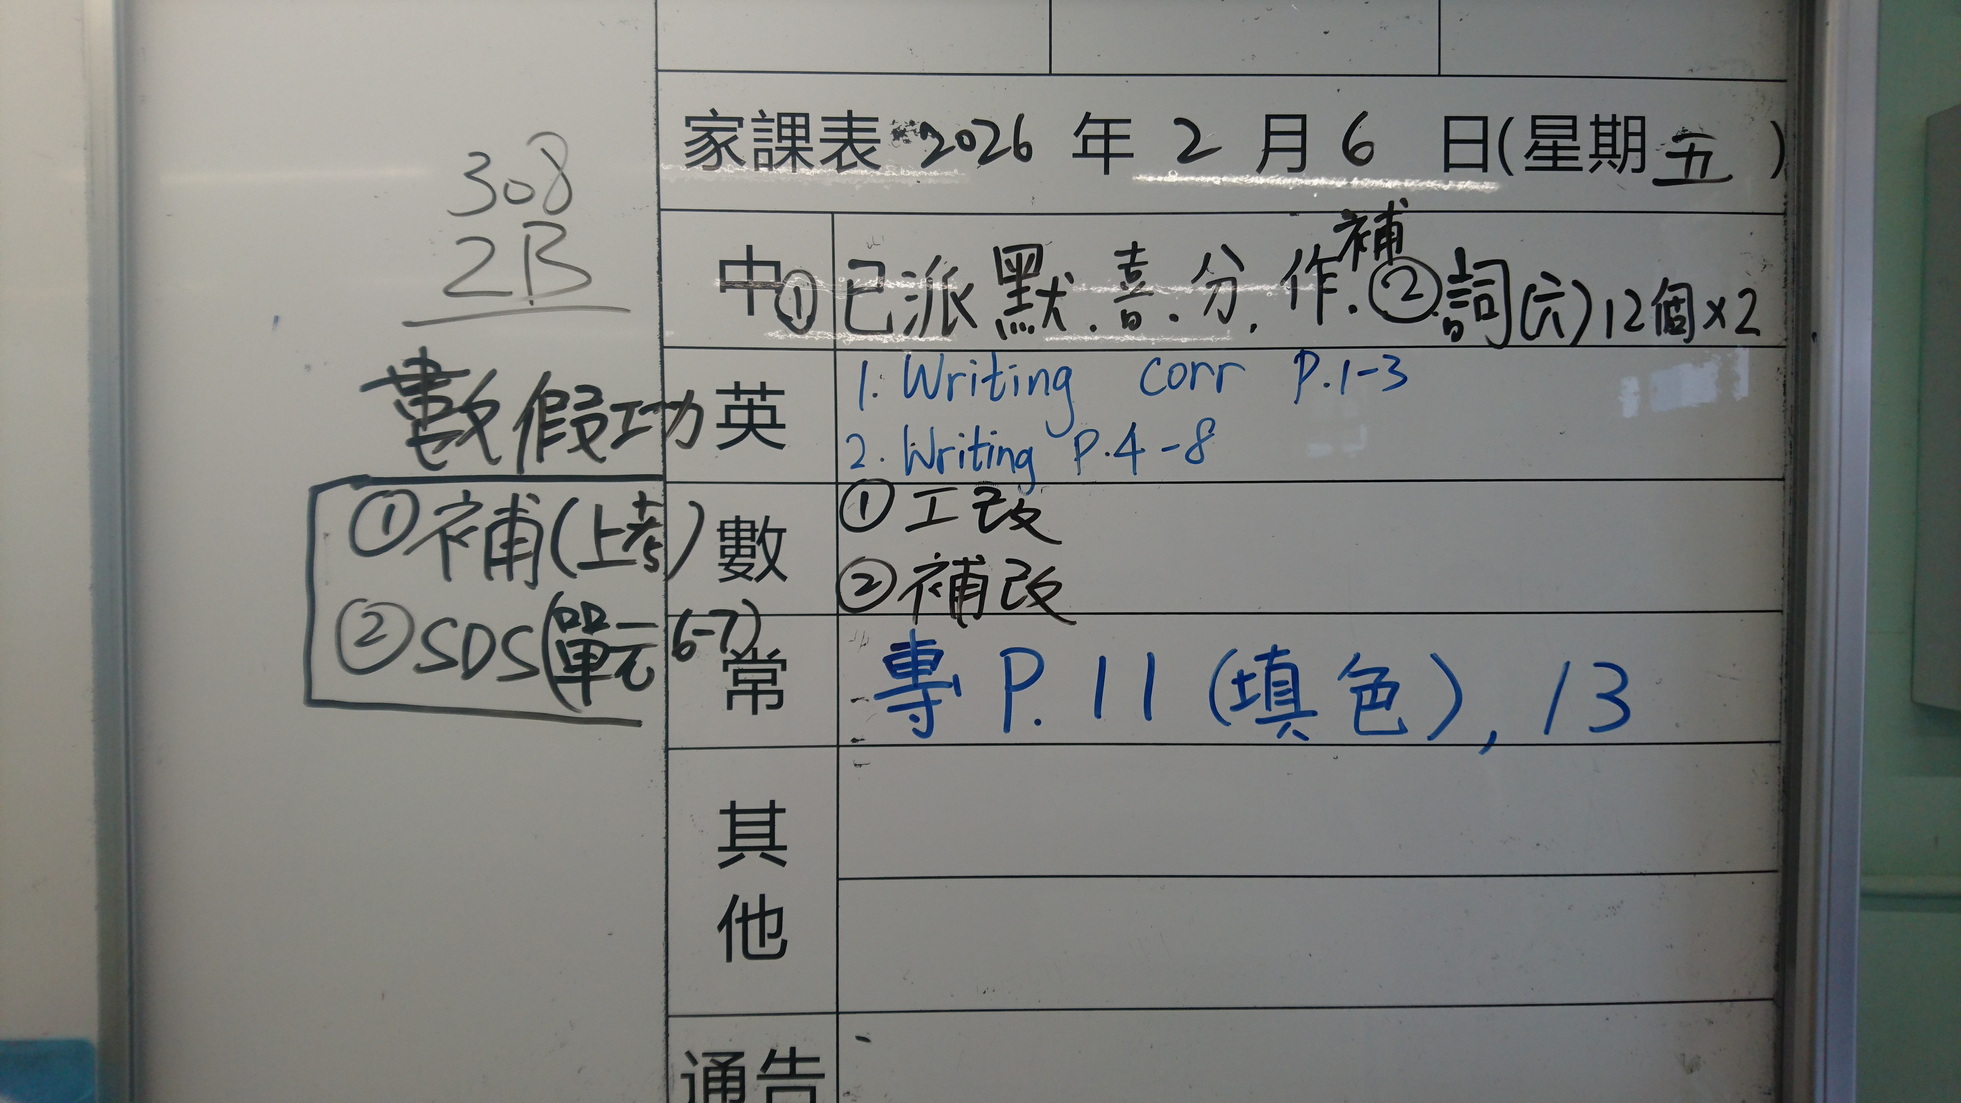 308
2B
數假功
①補(上考)
②SDS(單元6-7)
家課表 2026 年 2 月 6 日(星期五)
中 ①已派默.喜.分.作補.②詞(六)12個×2
英 1. Writing corr P.1-3
2. Writing P.4-8
數 ①工改
②補改
常 專 P.11(填色), 13
其他
通告